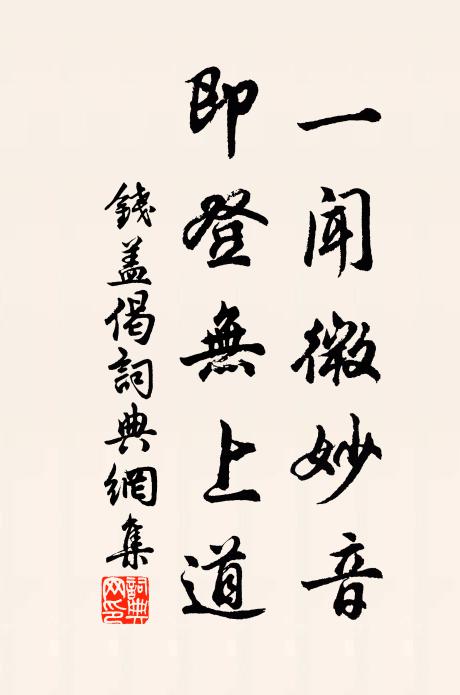 一聞微妙音
即登無上道
錢盖偈詞典網集
詞典网印